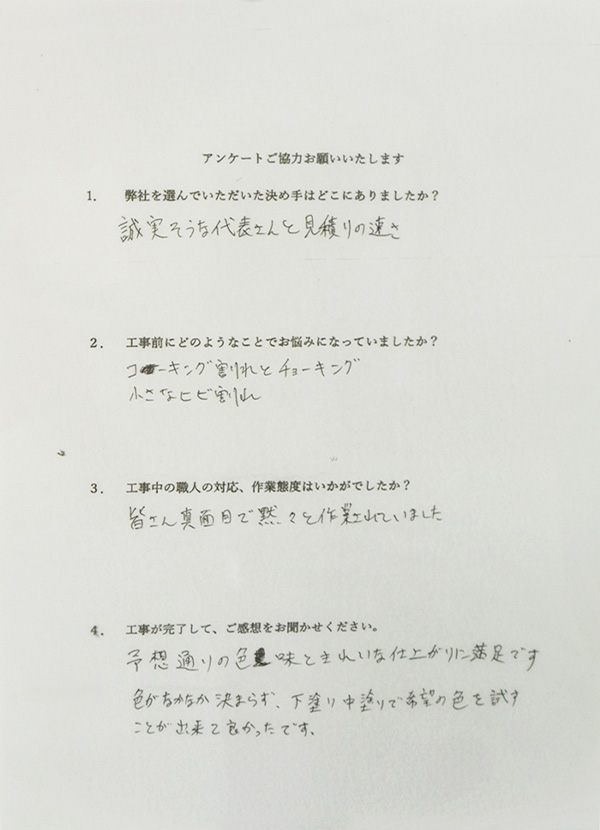 アンケートご協力お願いいたします
1. 弊社を選んでいただいた決め手はどこにありましたか?
誠実そうな代表さんと見積りの速さ
2. 工事前にどのようなことでお悩みになっていましたか?
コーキング割れとチョーキング
小さなヒビ割れ
3. 工事中の職人の対応、作業態度はいかがでしたか?
皆さん真面目で黙々と作業されていました
4. 工事が完了して、ご感想をお聞かせください。
予想通りの色味ときれいな仕上がりに満足です
色がなかなか決まらず、下塗り中塗りで希望の色を試す
ことが出来て良かったです、